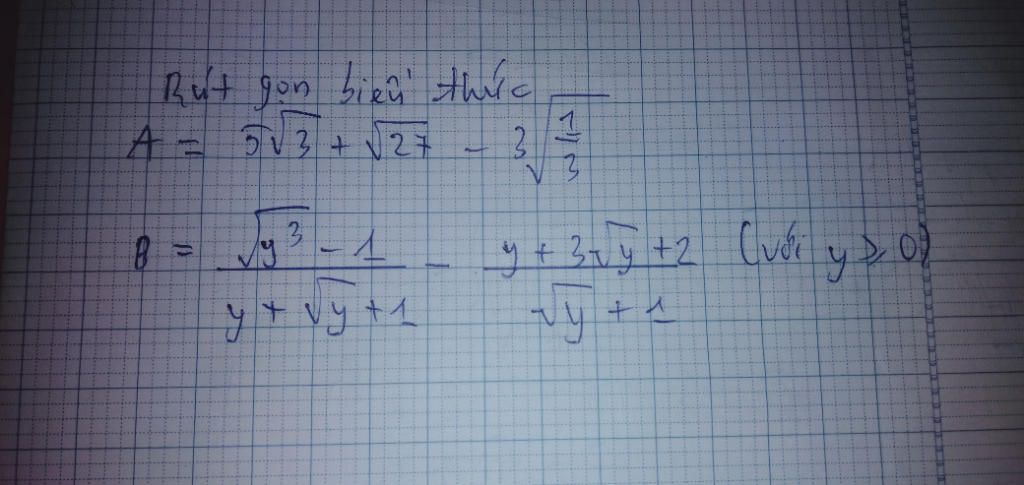 Rút gọn biểu thức
A = 5√3 + √27 - 3√(1/3)
B = (√(y³) - 1)/(y + √y + 1) - (y + 3√y + 2)/(√y + 1) (với y ≥ 0)